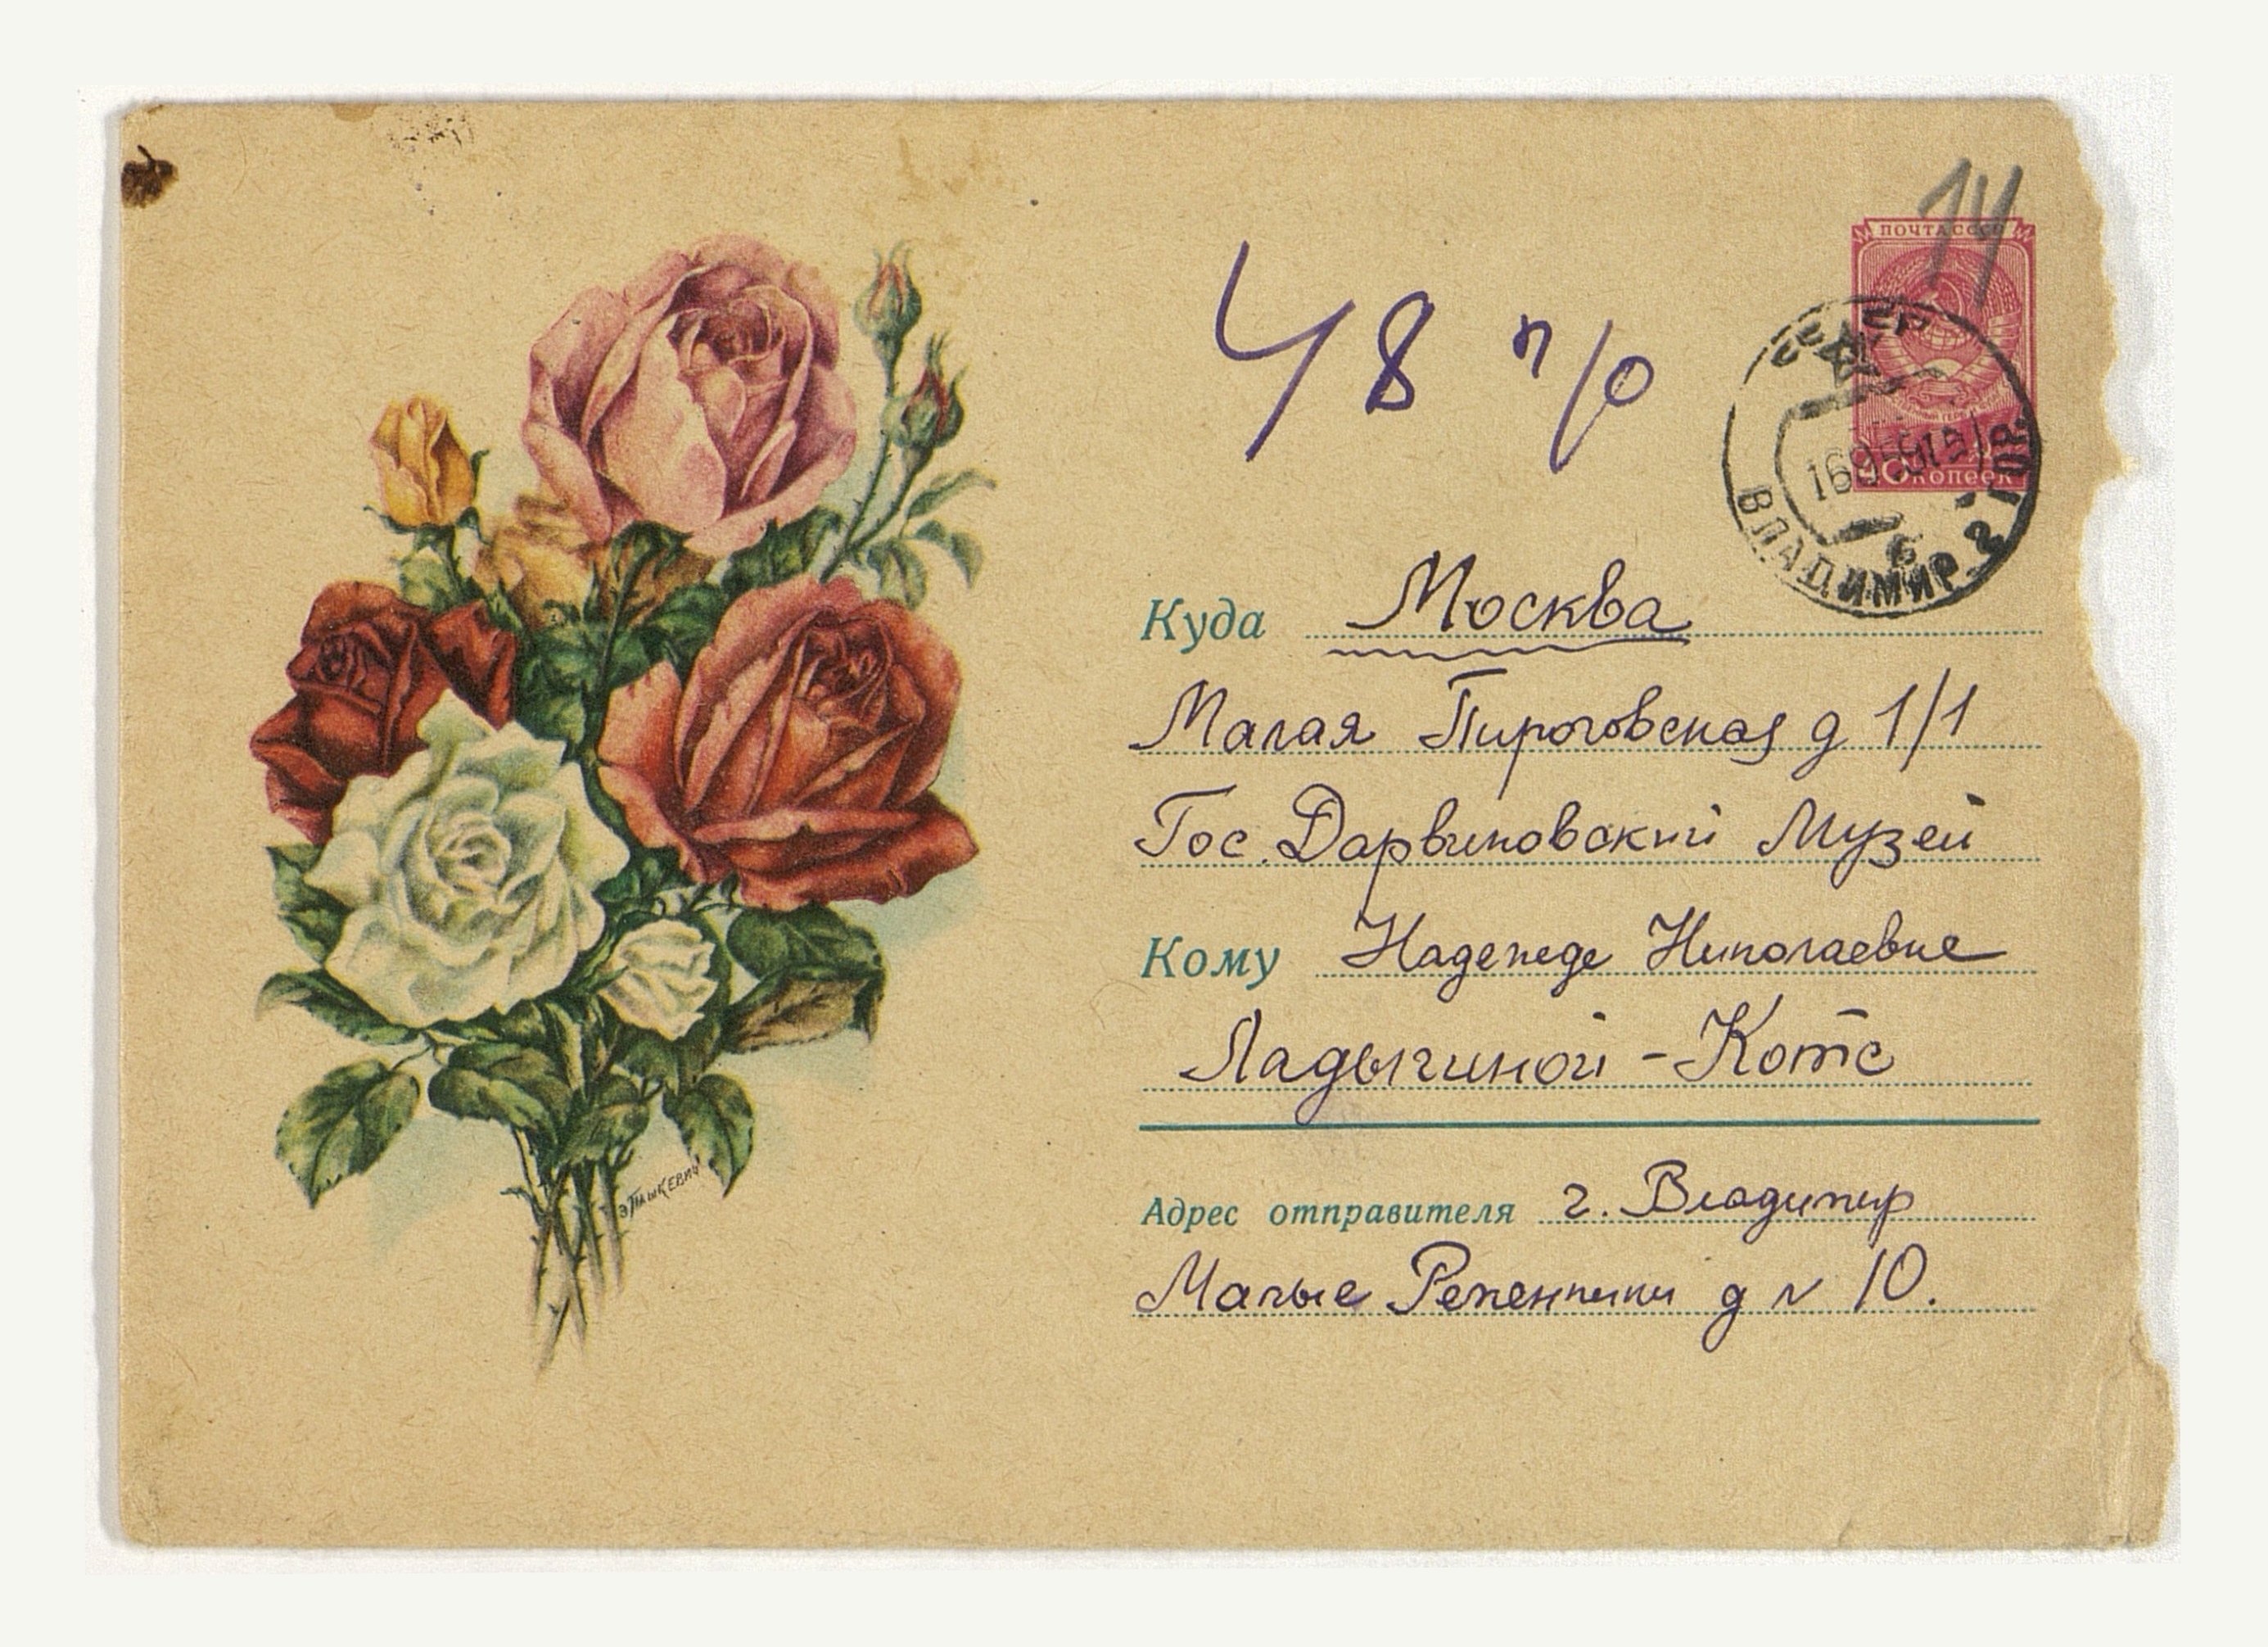 14
ПОЧТА СССР
48 п/о
СССР
40 копеек
ВЛАДИМИР 2 ГОР.
Куда Москва
Малая Пироговская д 1/1
Гос. Дарвиновский Музей
Кому Надежде Николаевне
Ладыгиной-Котс
Адрес отправителя г. Владимир
Малые Ременники д № 10.